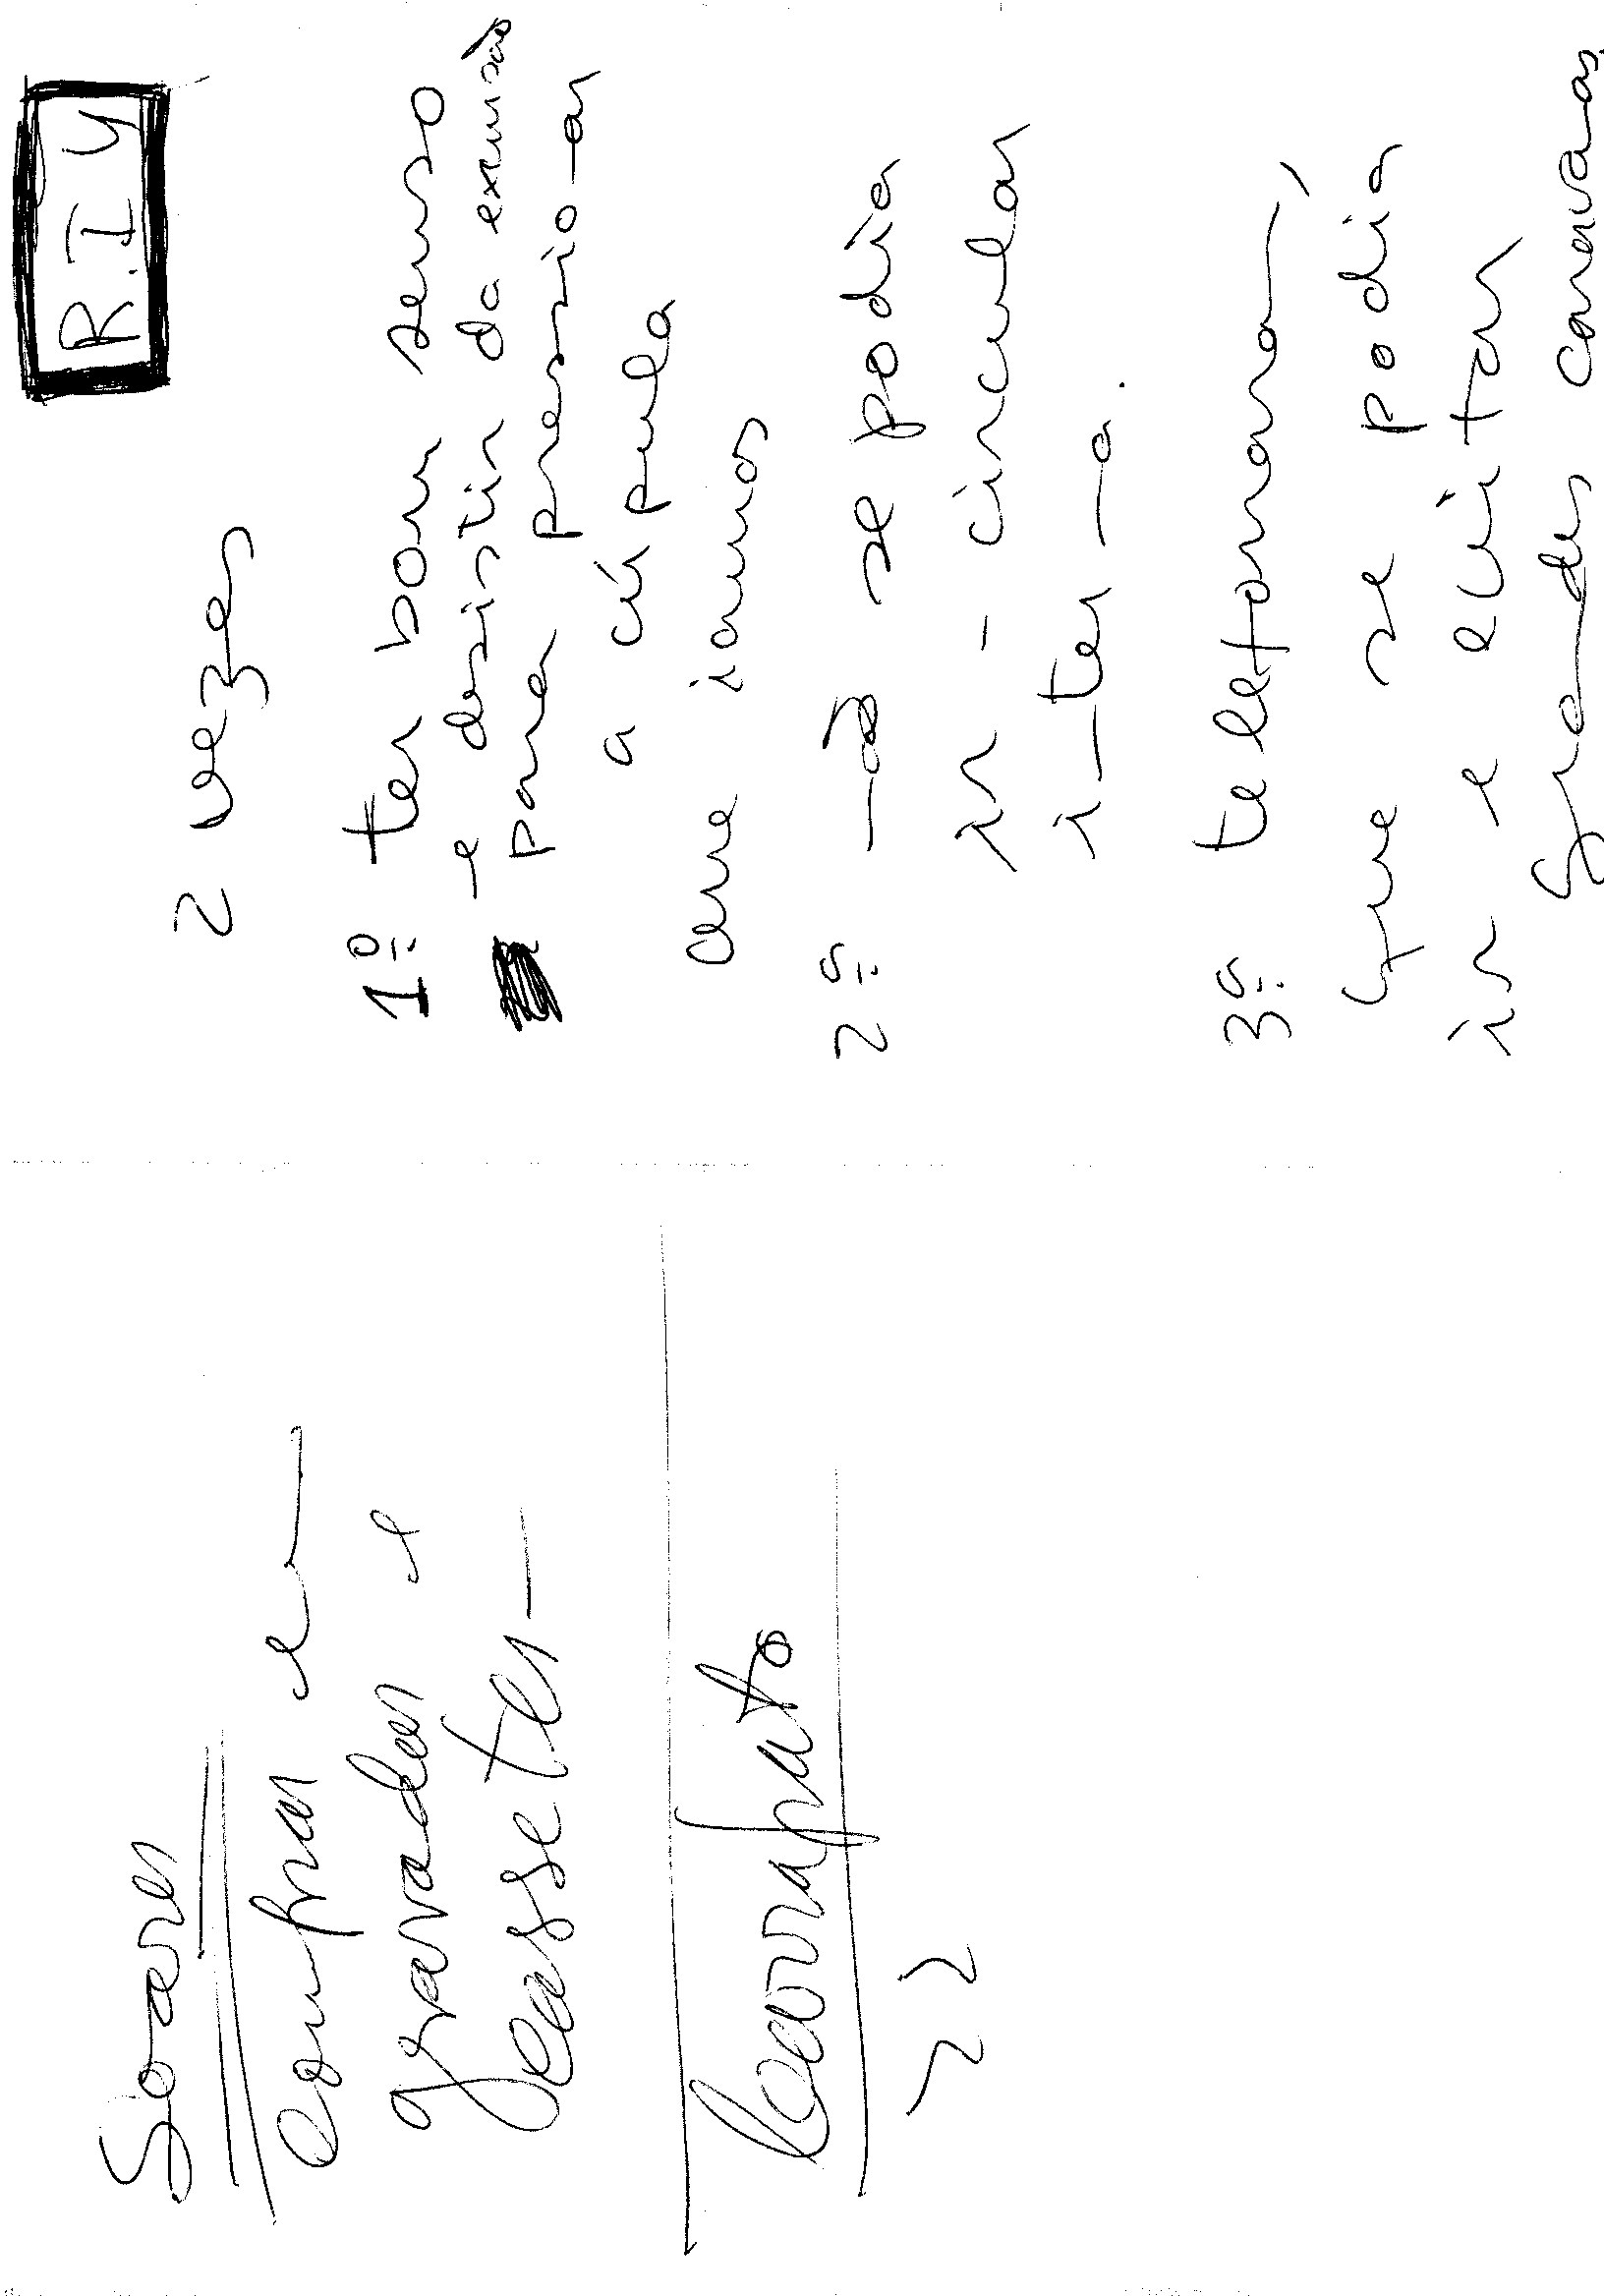 Soares
comprar e
gravador e
cassetes —
Carrapato
22
R.I.4
2 vezes
1º ter bom senso
e desistir da excursão
para pressio-ar
a cúpula
que íamos
2º — se podia
ir - circular
i-ter-a.
3º telefonar
que se podia
ir e evitar
grandes caravanas